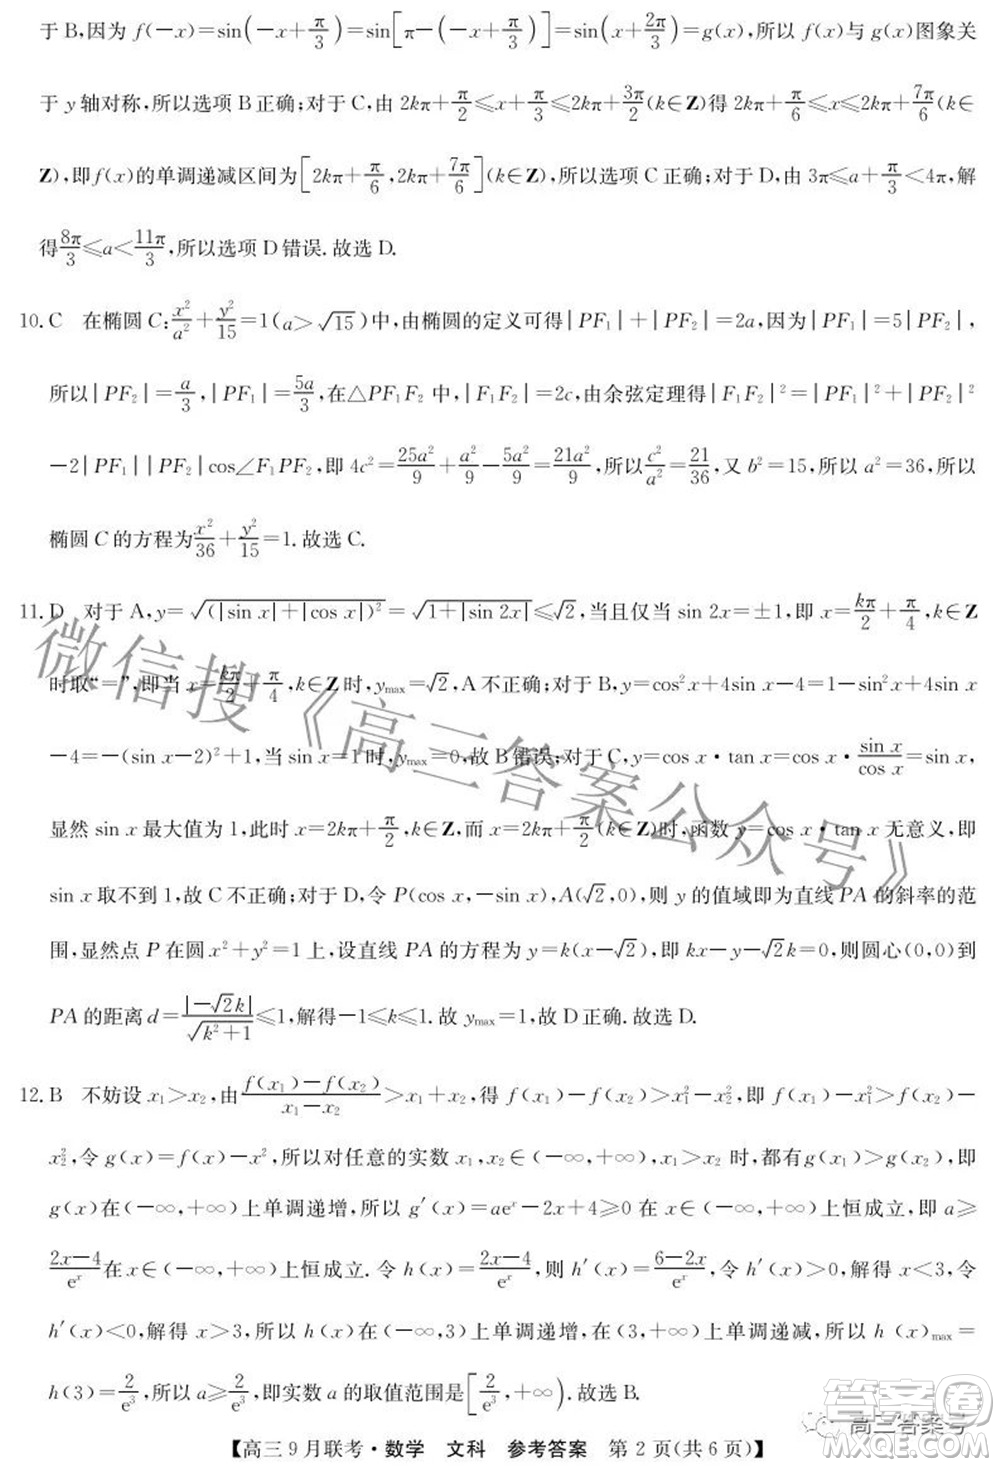 于 B,因为 f(−x)=sin(−x+π/3)=sin[π−(−x+π/3)]=sin(x+2π/3)=g(x),所以 f(x)与 g(x)图象关
于 y 轴对称,所以选项 B 正确;对于 C,由 2kπ+π/2≤x+π/3≤2kπ+3π/2(k∈Z)得 2kπ+π/6≤x≤2kπ+7π/6(k∈
Z),即 f(x)的单调递减区间为[2kπ+π/6,2kπ+7π/6](k∈Z),所以选项 C 正确;对于 D,由 3π≤a+π/3<4π,解
得8π/3≤a<11π/3,所以选项 D 错误.故选 D.
10. C 在椭圆 C:x²/a²+y²/15=1(a>√15)中,由椭圆的定义可得|PF₁|+|PF₂|=2a,因为|PF₁|=5|PF₂|,
所以|PF₂|=a/3,|PF₁|=5a/3,在△PF₁F₂ 中,|F₁F₂|=2c,由余弦定理得|F₁F₂|²=|PF₁|²+|PF₂|²
−2|PF₁||PF₂|cos∠F₁PF₂,即 4c²=25a²/9+a²/9−5a²/9=21a²/9,所以c²/a²=21/36,又 b²=15,所以 a²=36,所以
椭圆 C 的方程为x²/36+y²/15=1.故选 C.
11. D 对于 A,y=√(|sin x|+|cos x|)²=√1+|sin 2x|≤√2,当且仅当 sin 2x=±1,即 x=kπ/2+π/4,k∈Z
时取“=”,即当 x=kπ/2+π/4,k∈Z 时,yₘₐₓ=√2,A 不正确;对于 B,y=cos²x+4sin x−4=1−sin²x+4sin x
−4=−(sin x−2)²+1,当 sin x=1 时,yₘₐₓ=0,故 B 错误;对于 C,y=cos x·tan x=cos x·sin x/cos x=sin x,
显然 sin x 最大值为 1,此时 x=2kπ+π/2,k∈Z,而 x=2kπ+π/2(k∈Z)时,函数 y=cos x·tan x 无意义,即
sin x 取不到 1,故 C 不正确;对于 D,令 P(cos x,−sin x),A(√2,0),则 y 的值域即为直线 PA 的斜率的范
围,显然点 P 在圆 x²+y²=1 上,设直线 PA 的方程为 y=k(x−√2),即 kx−y−√2k=0,则圆心(0,0)到
PA 的距离 d=|−√2k|/√k²+1≤1,解得−1≤k≤1.故 yₘₐₓ=1,故 D 正确.故选 D.
12. B 不妨设 x₁>x₂,由f(x₁)−f(x₂)/x₁−x₂>x₁+x₂,得 f(x₁)−f(x₂)>x₁²−x₂²,即 f(x₁)−x₁²>f(x₂)−
x₂²,令 g(x)=f(x)−x²,所以对任意的实数 x₁,x₂∈(−∞,+∞),x₁>x₂ 时,都有g(x₁)>g(x₂),即
g(x)在(−∞,+∞)上单调递增,所以 g′(x)=aeˣ−2x+4≥0 在 x∈(−∞,+∞)上恒成立,即 a≥
2x−4/eˣ在 x∈(−∞,+∞)上恒成立.令 h(x)=2x−4/eˣ,则 h′(x)=6−2x/eˣ,令 h′(x)>0,解得 x<3,令
h′(x)<0,解得 x>3,所以 h(x)在(−∞,3)上单调递增,在(3,+∞)上单调递减,所以 h(x)ₘₐₓ=
h(3)=2/e³,所以 a≥2/e³,即实数 a 的取值范围是[2/e³,+∞).故选 B.
【高三 9 月联考·数学 文科 参考答案 第 2 页(共 6 页)】
微信搜《高三答案公众号》
高三答案号
答案圈
MXQE.COM